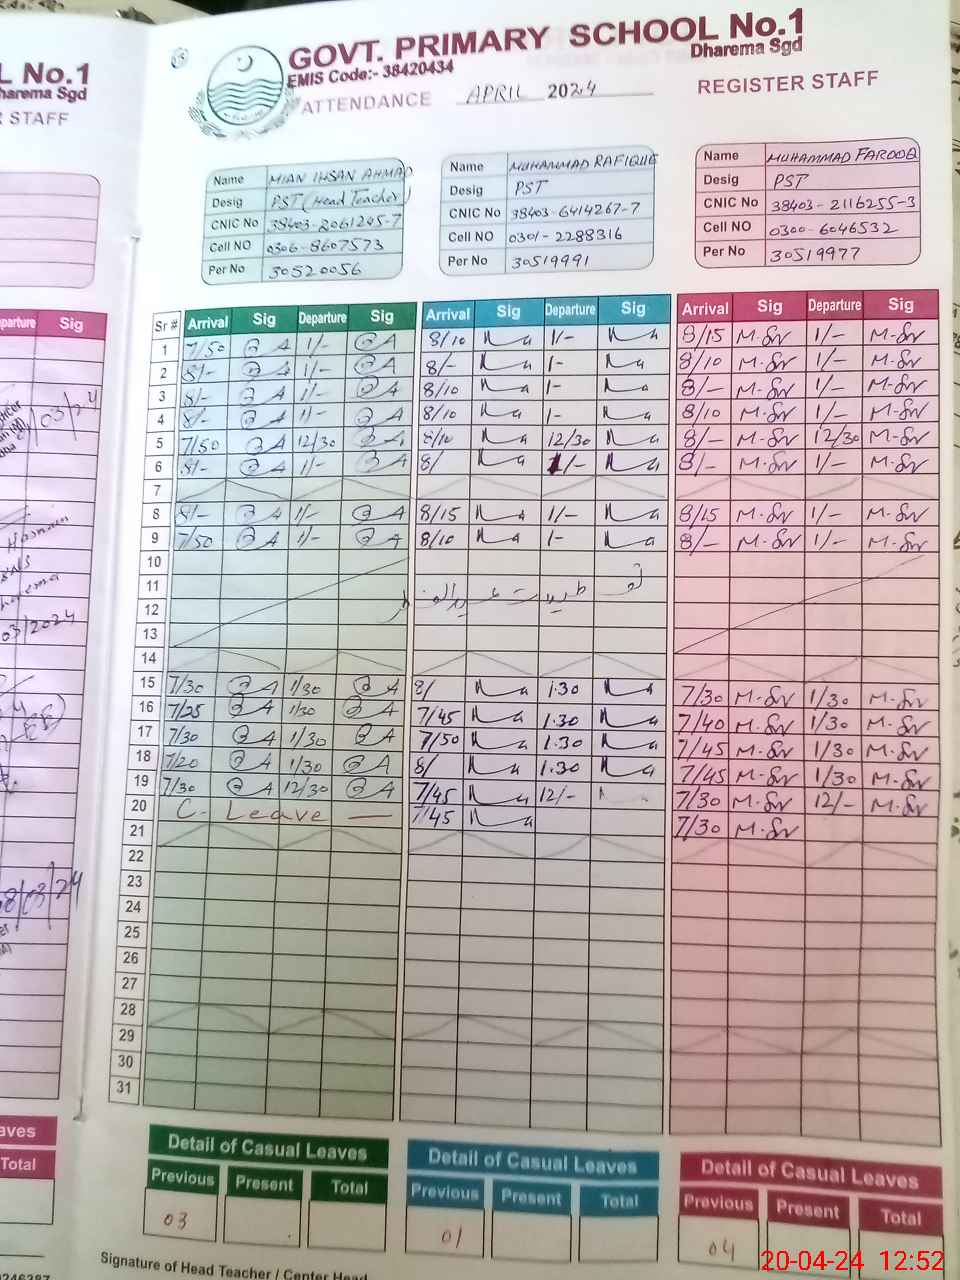 GOVT. PRIMARY SCHOOL No.1
Dharema Sgd
EMIS Code:- 38420434
ATTENDANCE APRIL 2024 REGISTER STAFF
L No.1
harema Sgd
R STAFF
Name MIAN IHSAN AHMAD
Desig PST (Head Teacher)
CNIC No 38403-2061245-7
Cell NO 0306-8607573
Per No 30520056
Name MUHAMMAD RAFIQUE
Desig PST
CNIC No 38403-6414267-7
Cell NO 0301-2288316
Per No 30519991
Name MUHAMMAD FAROOQ
Desig PST
CNIC No 38403-2116255-3
Cell NO 0300-6046532
Per No 30519977
parture Sig
Sr # Arrival Sig Departure Sig Arrival Sig Departure Sig Arrival Sig Departure Sig
1 7/50 1/- 8/10 1/- 8/15 M.Sr 1/- M.Sr
2 8/- 1/- 8/- 1- 8/10 M.Sr 1/- M.Sr
3 8/- 1/- 8/10 1- 8/- M.Sr 1/- M.Sr
4 8/- 1/- 8/10 1- 8/10 M.Sr 1/- M.Sr
5 7/50 12/30 8/10 12/30 8/- M.Sr 12/30 M.Sr
6 8/- 1/- 8/ 1/- 8/- M.Sr 1/- M.Sr
7
8 8/- 1/- 8/15 1/- 8/15 M.Sr 1/- M.Sr
9 7/50 1/- 8/10 1- 8/- M.Sr 1/- M.Sr
10
11
12
13
14
15 7/30 1/30 8/ 1.30 7/30 M.Sr 1/30 M.Sr
16 7/25 1/30 7/45 1.30 7/40 M.Sr 1/30 M.Sr
17 7/30 1/30 7/50 1.30 7/45 M.Sr 1/30 M.Sr
18 7/20 1/30 8/ 1.30 7/45 M.Sr 1/30 M.Sr
19 7/30 12/30 7/45 12/- 7/30 M.Sr 12/- M.Sr
20 C- Leave — 7/45 7/30 M.Sr
21
22
23
24
25
26
27
28
29
30
31
aves
Total
Detail of Casual Leaves
Previous Present Total
03
Detail of Casual Leaves
Previous Present Total
01
Detail of Casual Leaves
Previous Present Total
04
Signature of Head Teacher / Center Head
20-04-24 12:52